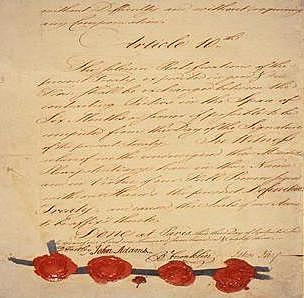 without Difficulty and without requiring
any Compensation.
Article 10th
The solemn Ratifications of the
present Treaty expedited in good & due
Form shall be exchanged between the
contracting Parties in the Space of
Six Months or sooner if possible to be
computed from the Day of the Signature
of the present Treaty. In Witness
whereof we the undersigned
in their Name
and in Virtue of our Full Powers
with our Hands the present Definitive
Treaty, and caused the Seals of our Arms
to be affix'd thereto.
Done at Paris, this third day of September
D Hartley John Adams B Franklin John Jay